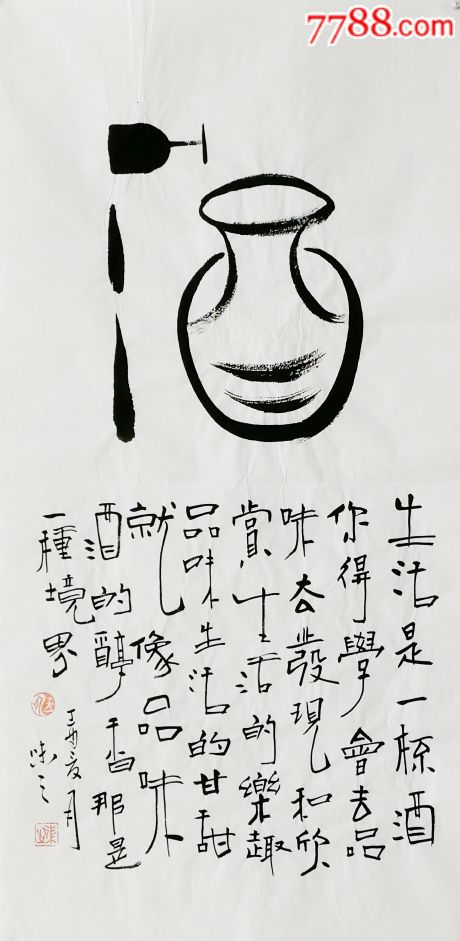 7788.com
酒
生活是一杯酒
你得學會去品
味去發現和欣
賞生活的樂趣
品味生活的甘甜
就像品味
酒的醇香那是
一種境界
丁酉夏月